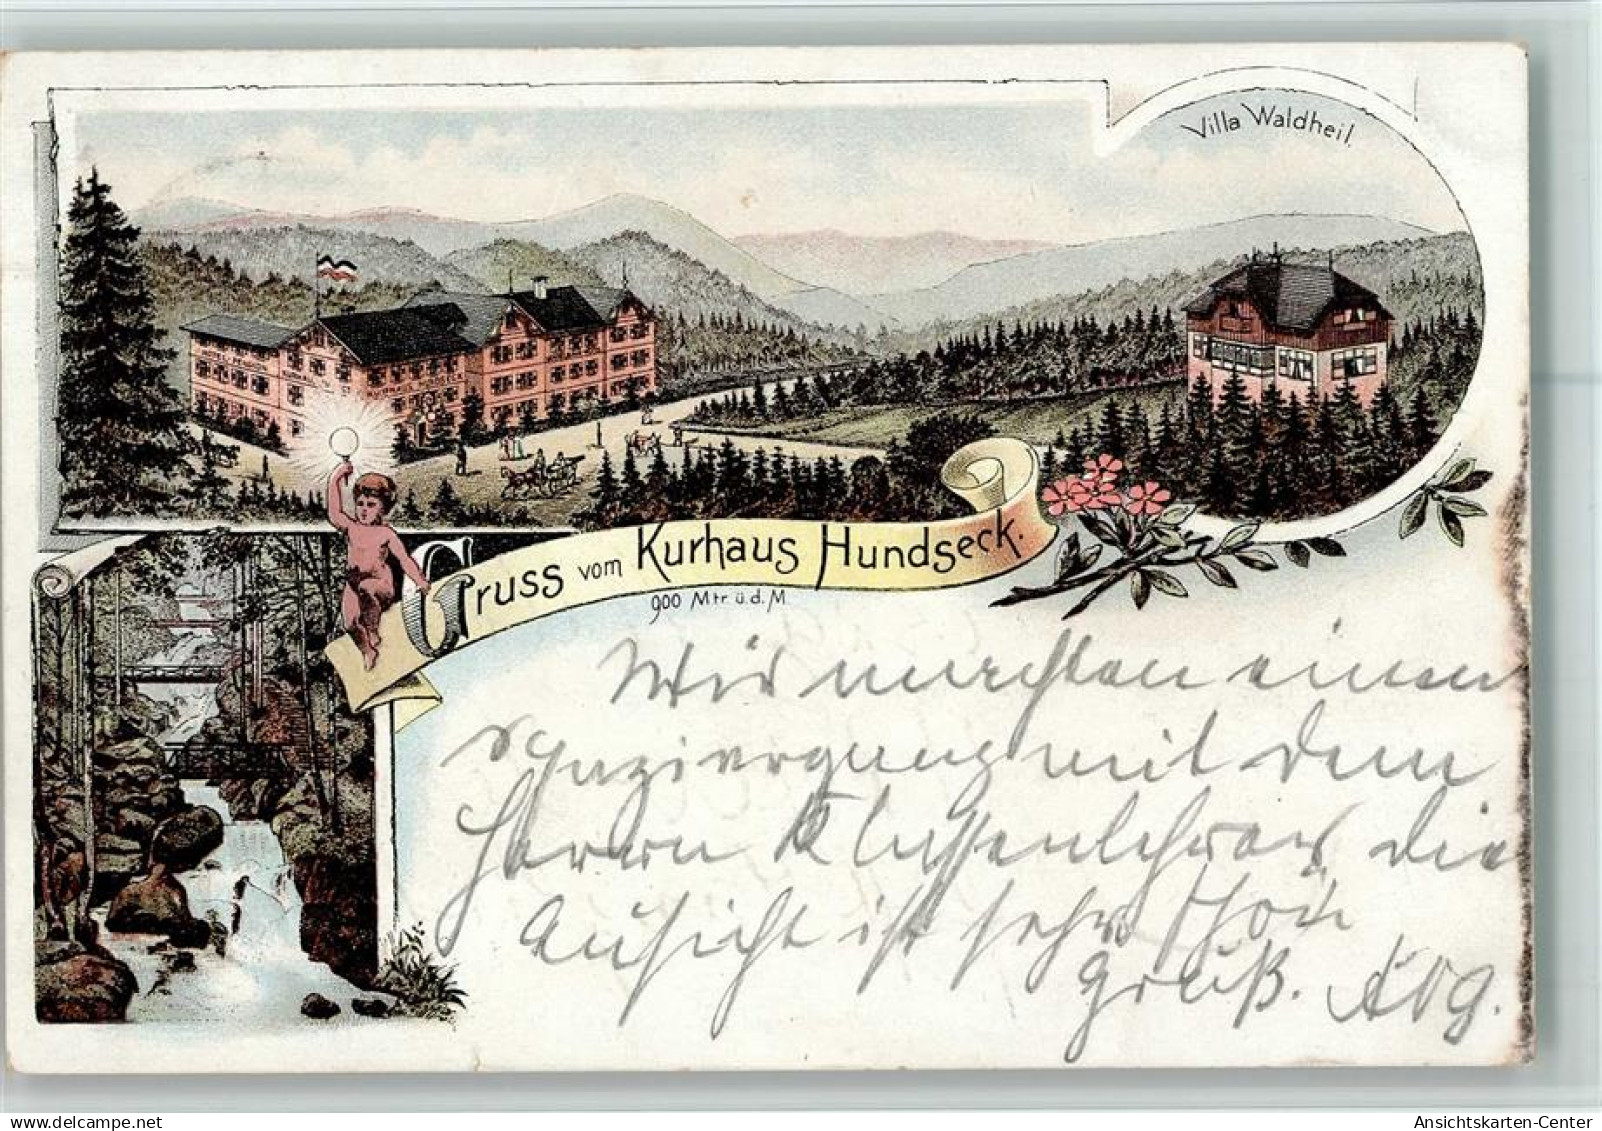 Villa Waldheil.
Gruss vom Kurhaus Hundseck.
900 Mtr ü. d. M
Wir machten einen
Spaziergang mit dem
Herrn Klassenlehrer die
Aussicht ist sehr schön
Gruß.
Ansichtskarten-Center